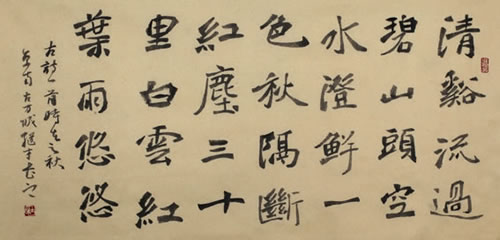 清谿流過
碧山頭空
水澄鮮一
色秋隔斷
紅塵三十
里白雲紅
葉雨悠悠
古詩一首時之秋
古方城